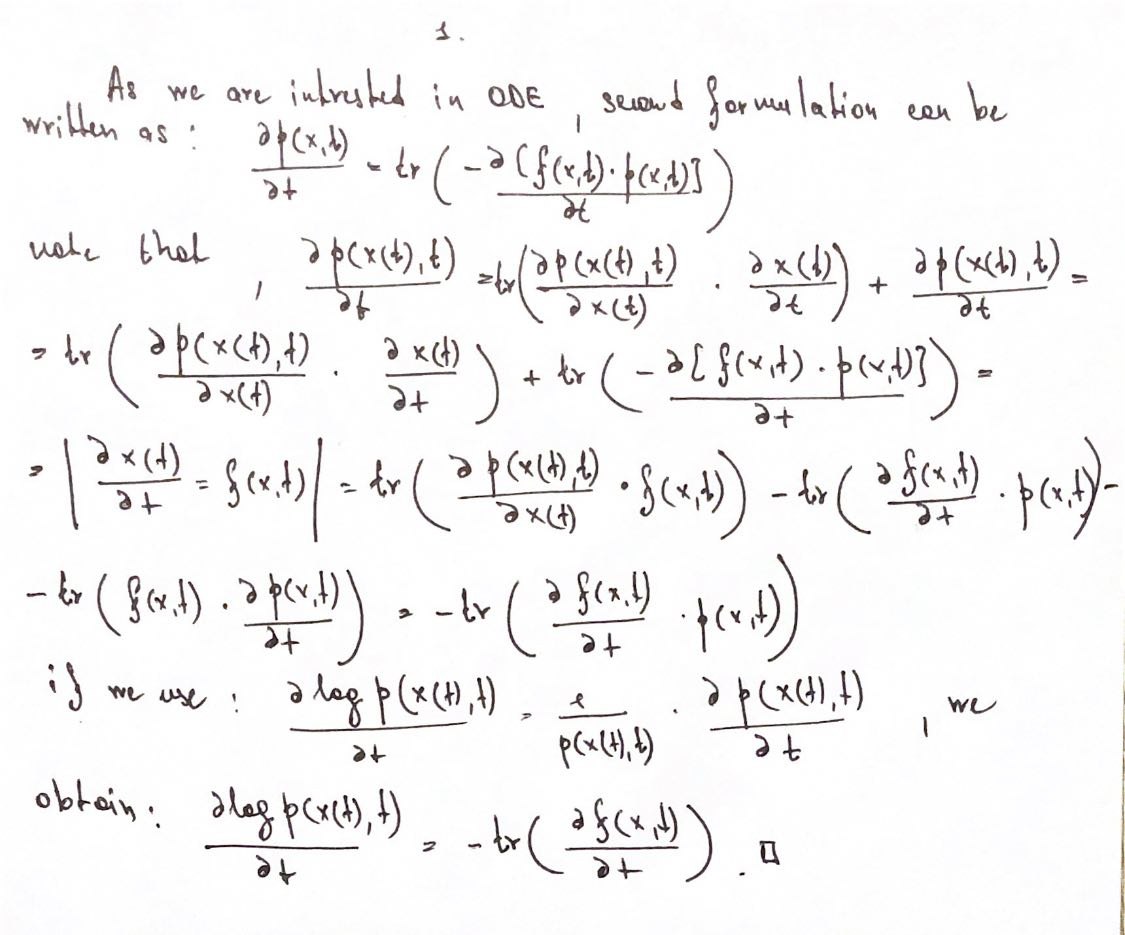 1.
As we are intrested in ODE, second formulation can be
written as: ∂p(x,t)/∂t = tr(-∂[f(x,t)·p(x,t)]/∂t)
note that, ∂p(x(t),t)/∂t = tr(∂p(x(t),t)/∂x(t) · ∂x(t)/∂t) + ∂p(x(t),t)/∂t =
= tr(∂p(x(t),t)/∂x(t) · ∂x(t)/∂t) + tr(-∂[f(x,t)·p(x,t)]/∂t) =
= |∂x(t)/∂t = f(x,t)| = tr(∂p(x(t),t)/∂x(t) · f(x,t)) - tr(∂f(x,t)/∂t · p(x,t)) -
- tr(f(x,t) · ∂p(x,t)/∂t) = - tr(∂f(x,t)/∂t · p(x,t))
if we use: ∂log p(x(t),t)/∂t = 1/p(x(t),t) · ∂p(x(t),t)/∂t, we
obtain: ∂log p(x(t),t)/∂t = - tr(∂f(x,t)/∂t). □